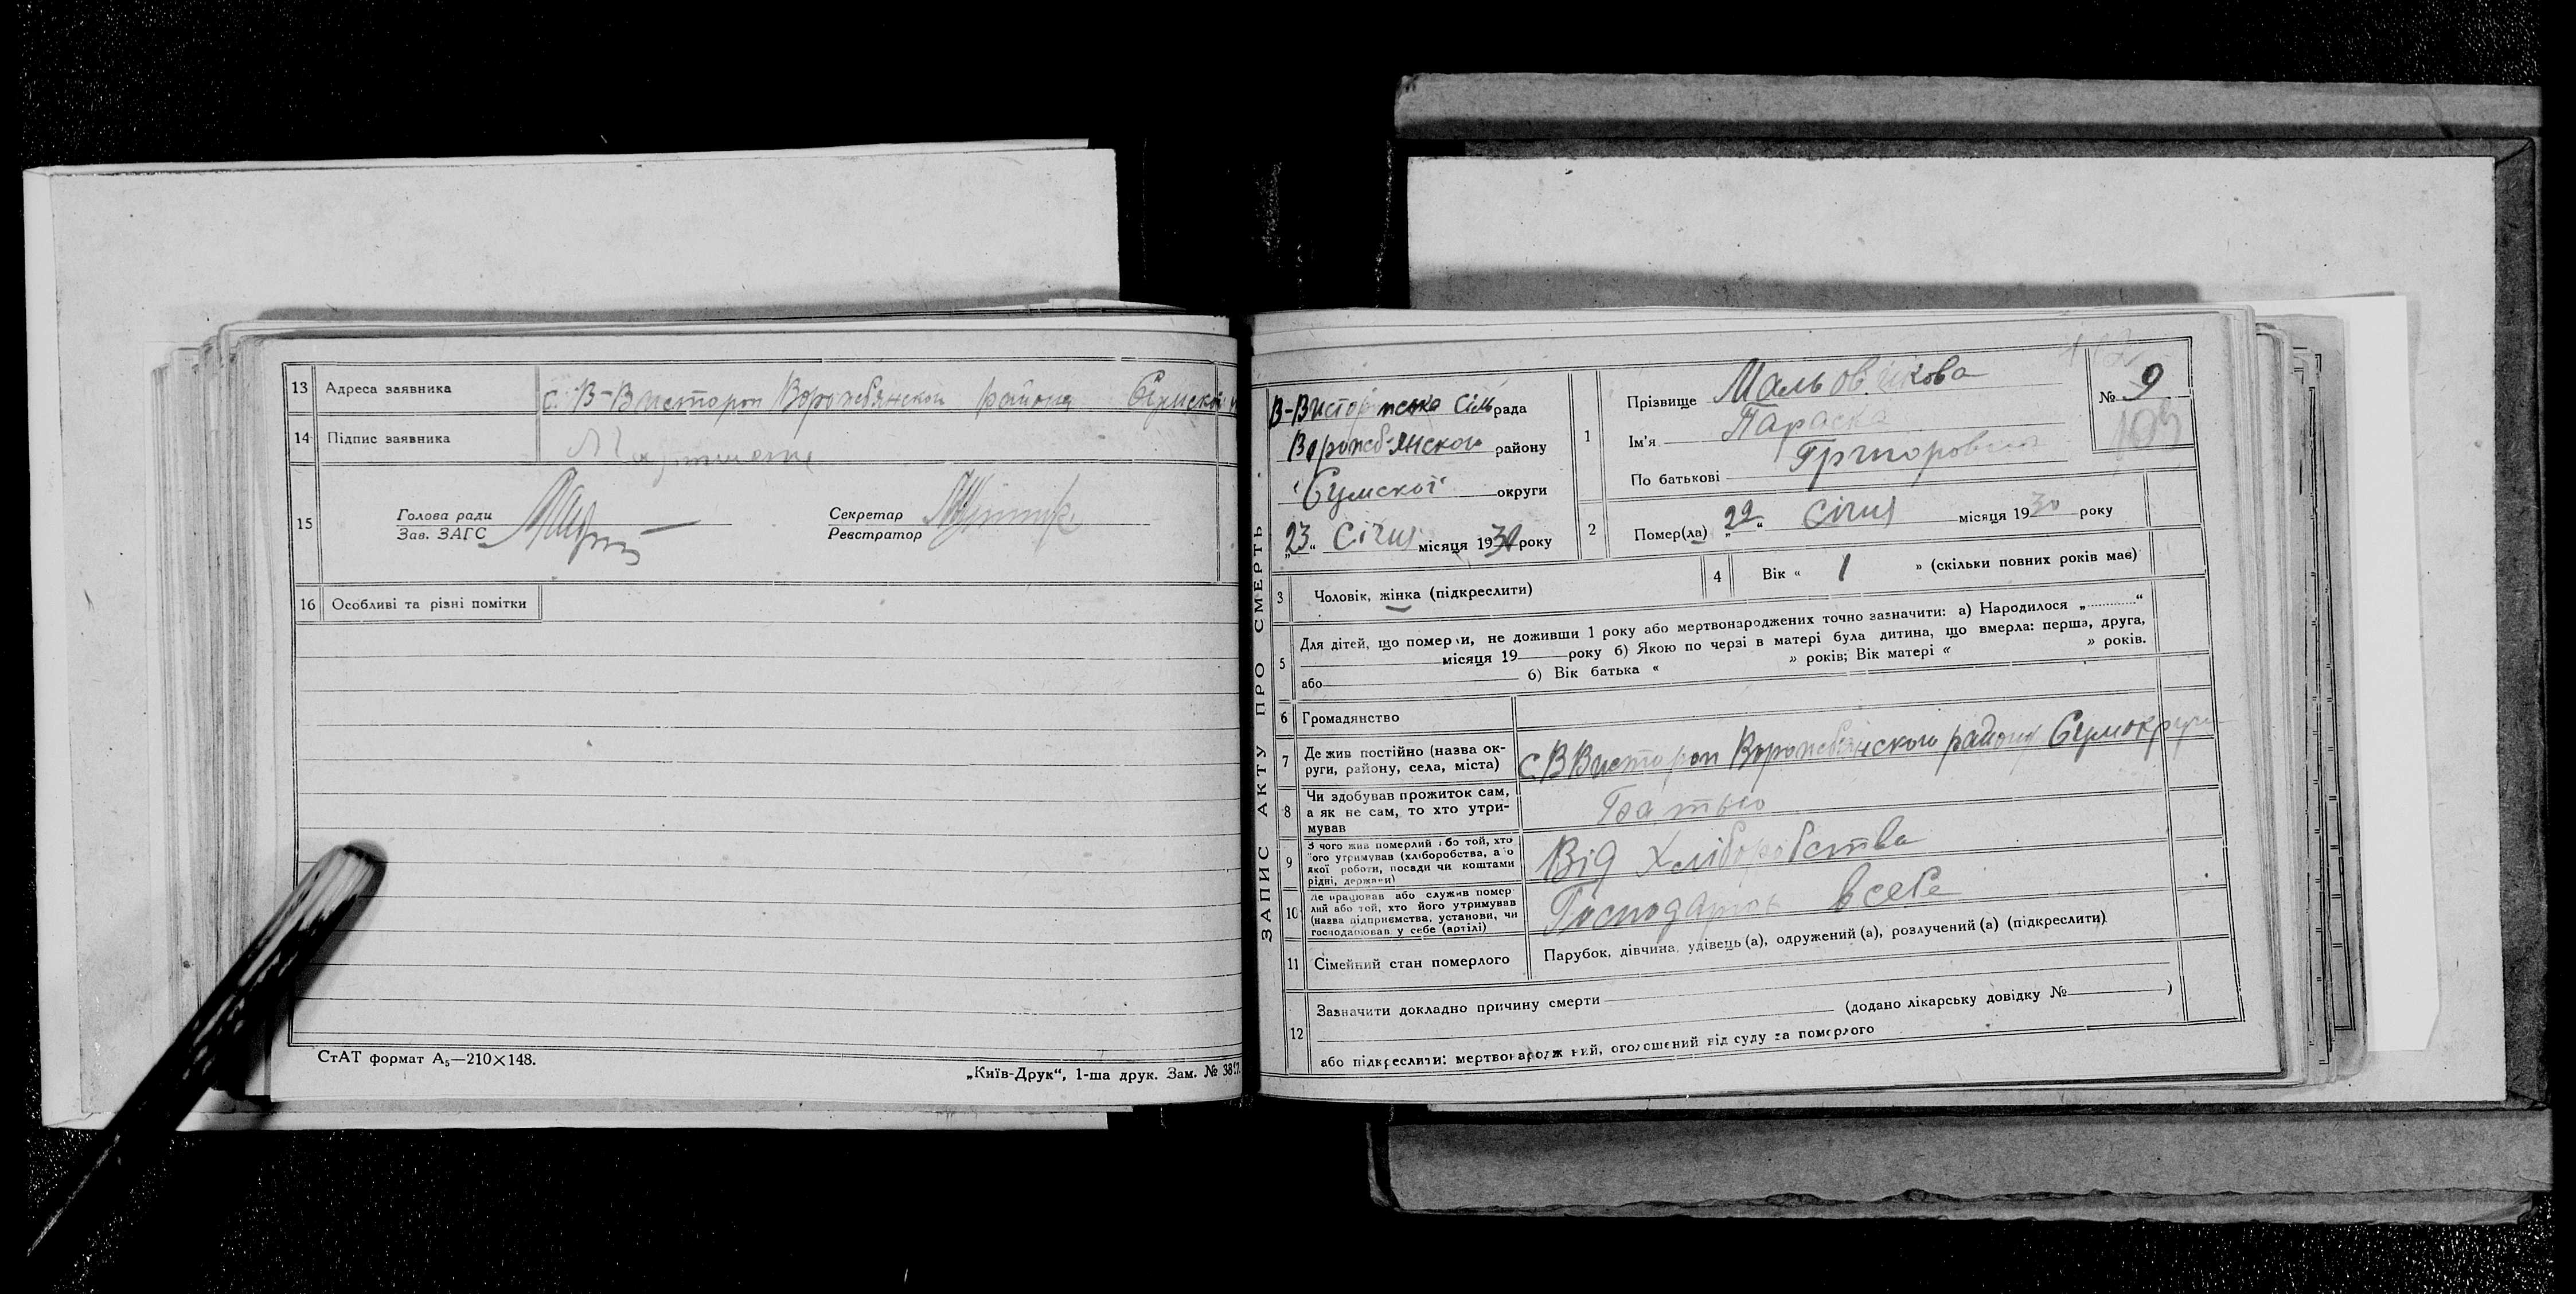 13 Адреса заявника с. В-Вистороп Ворожбянской района Сумской
14 Підпис заявника
15 Голова ради
Зав. ЗАГС
Секретар
Реєстратор
16 Особливі та різні помітки
СтАТ формат А₅—210×148.
„Київ-Друк“, 1-ша друк. Зам. №
ЗАПИС АКТУ ПРО СМЕРТЬ
В-Висторопська Сільрада
Ворожбянской району
Сумской округи
„23“ Січня місяця 1930 року
1 Прізвище Мальовикова
Ім'я Параска
По батькові Григоровна
№ 9
103
2 Помер(ла) „22“ Січня місяця 1930 року
3 Чоловік, жінка (підкреслити)
4 Вік « 1 » (скільки повних років має)
5 Для дітей, що померли, не доживши 1 року або мертвонароджених точно зазначити: а) Народилося „ “
місяця 19 року б) Якою по черзі в матері була дитина, що вмерла: перша, друга,
або б) Вік батька « » років; Вік матері « » років.
6 Громадянство
7 Де жив постійно (назва ок-
руги, району, села, міста) с. В Вистороп Ворожбянского району Сумокруги
8 Чи здобував прожиток сам,
а як не сам, то хто утри-
мував Батько
9 З чого жив померлий або той, хто
його утримував (хліборобства, або
якої роботи, посади чи коштами
рідні, держави) Від Хліборобства
10 Де працював або служив помер
лий або той, хто його утримував
(назва підприємства, установи, чи
господарював у себе (артілі) Господарюв в себе
11 Сімейний стан померлого Парубок, дівчина, удівець (а), одружений (а), розлучений (а) (підкреслити)
12 Зазначити докладно причину смерти
(додано лікарську довідку № )
або підкреслити: мертвонароджений, оголошений від суду за померлого